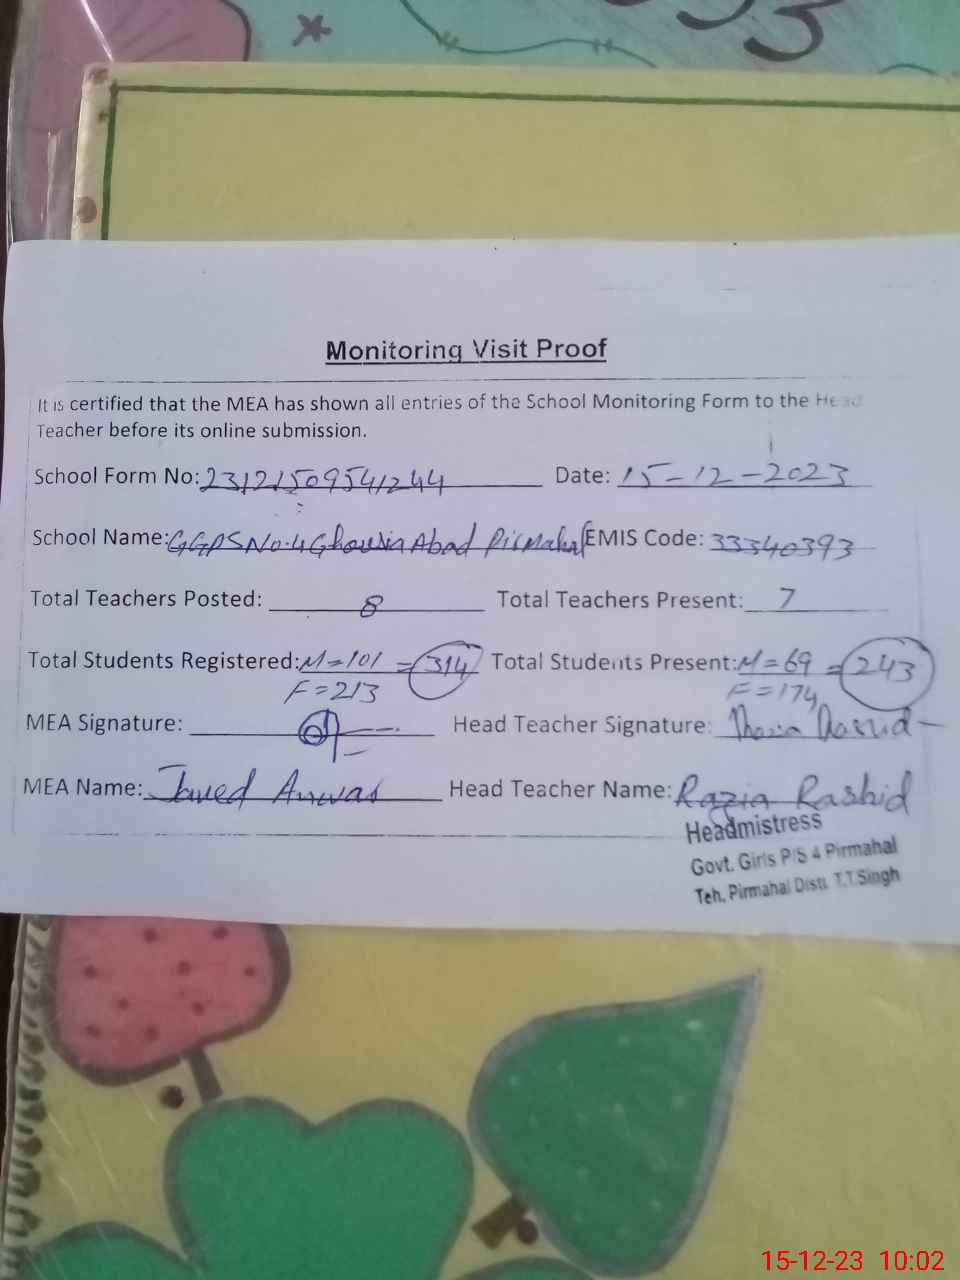 Monitoring Visit Proof
It is certified that the MEA has shown all entries of the School Monitoring Form to the Head
Teacher before its online submission.
School Form No: 23121509541244 Date: 15-12-2023
School Name: GGPS No.4 Ghousia Abad Pirmahal EMIS Code: 33340393
Total Teachers Posted: 8 Total Teachers Present: 7
Total Students Registered: M=101 = 314 Total Students Present: M=69 = 243
F=213 F=174
MEA Signature: Head Teacher Signature: Razia Rashid
MEA Name: Javed Anwar Head Teacher Name: Razia Rashid
Headmistress
Govt. Girls P/S 4 Pirmahal
Teh. Pirmahal Distt. T.T.Singh
15-12-23 10:02